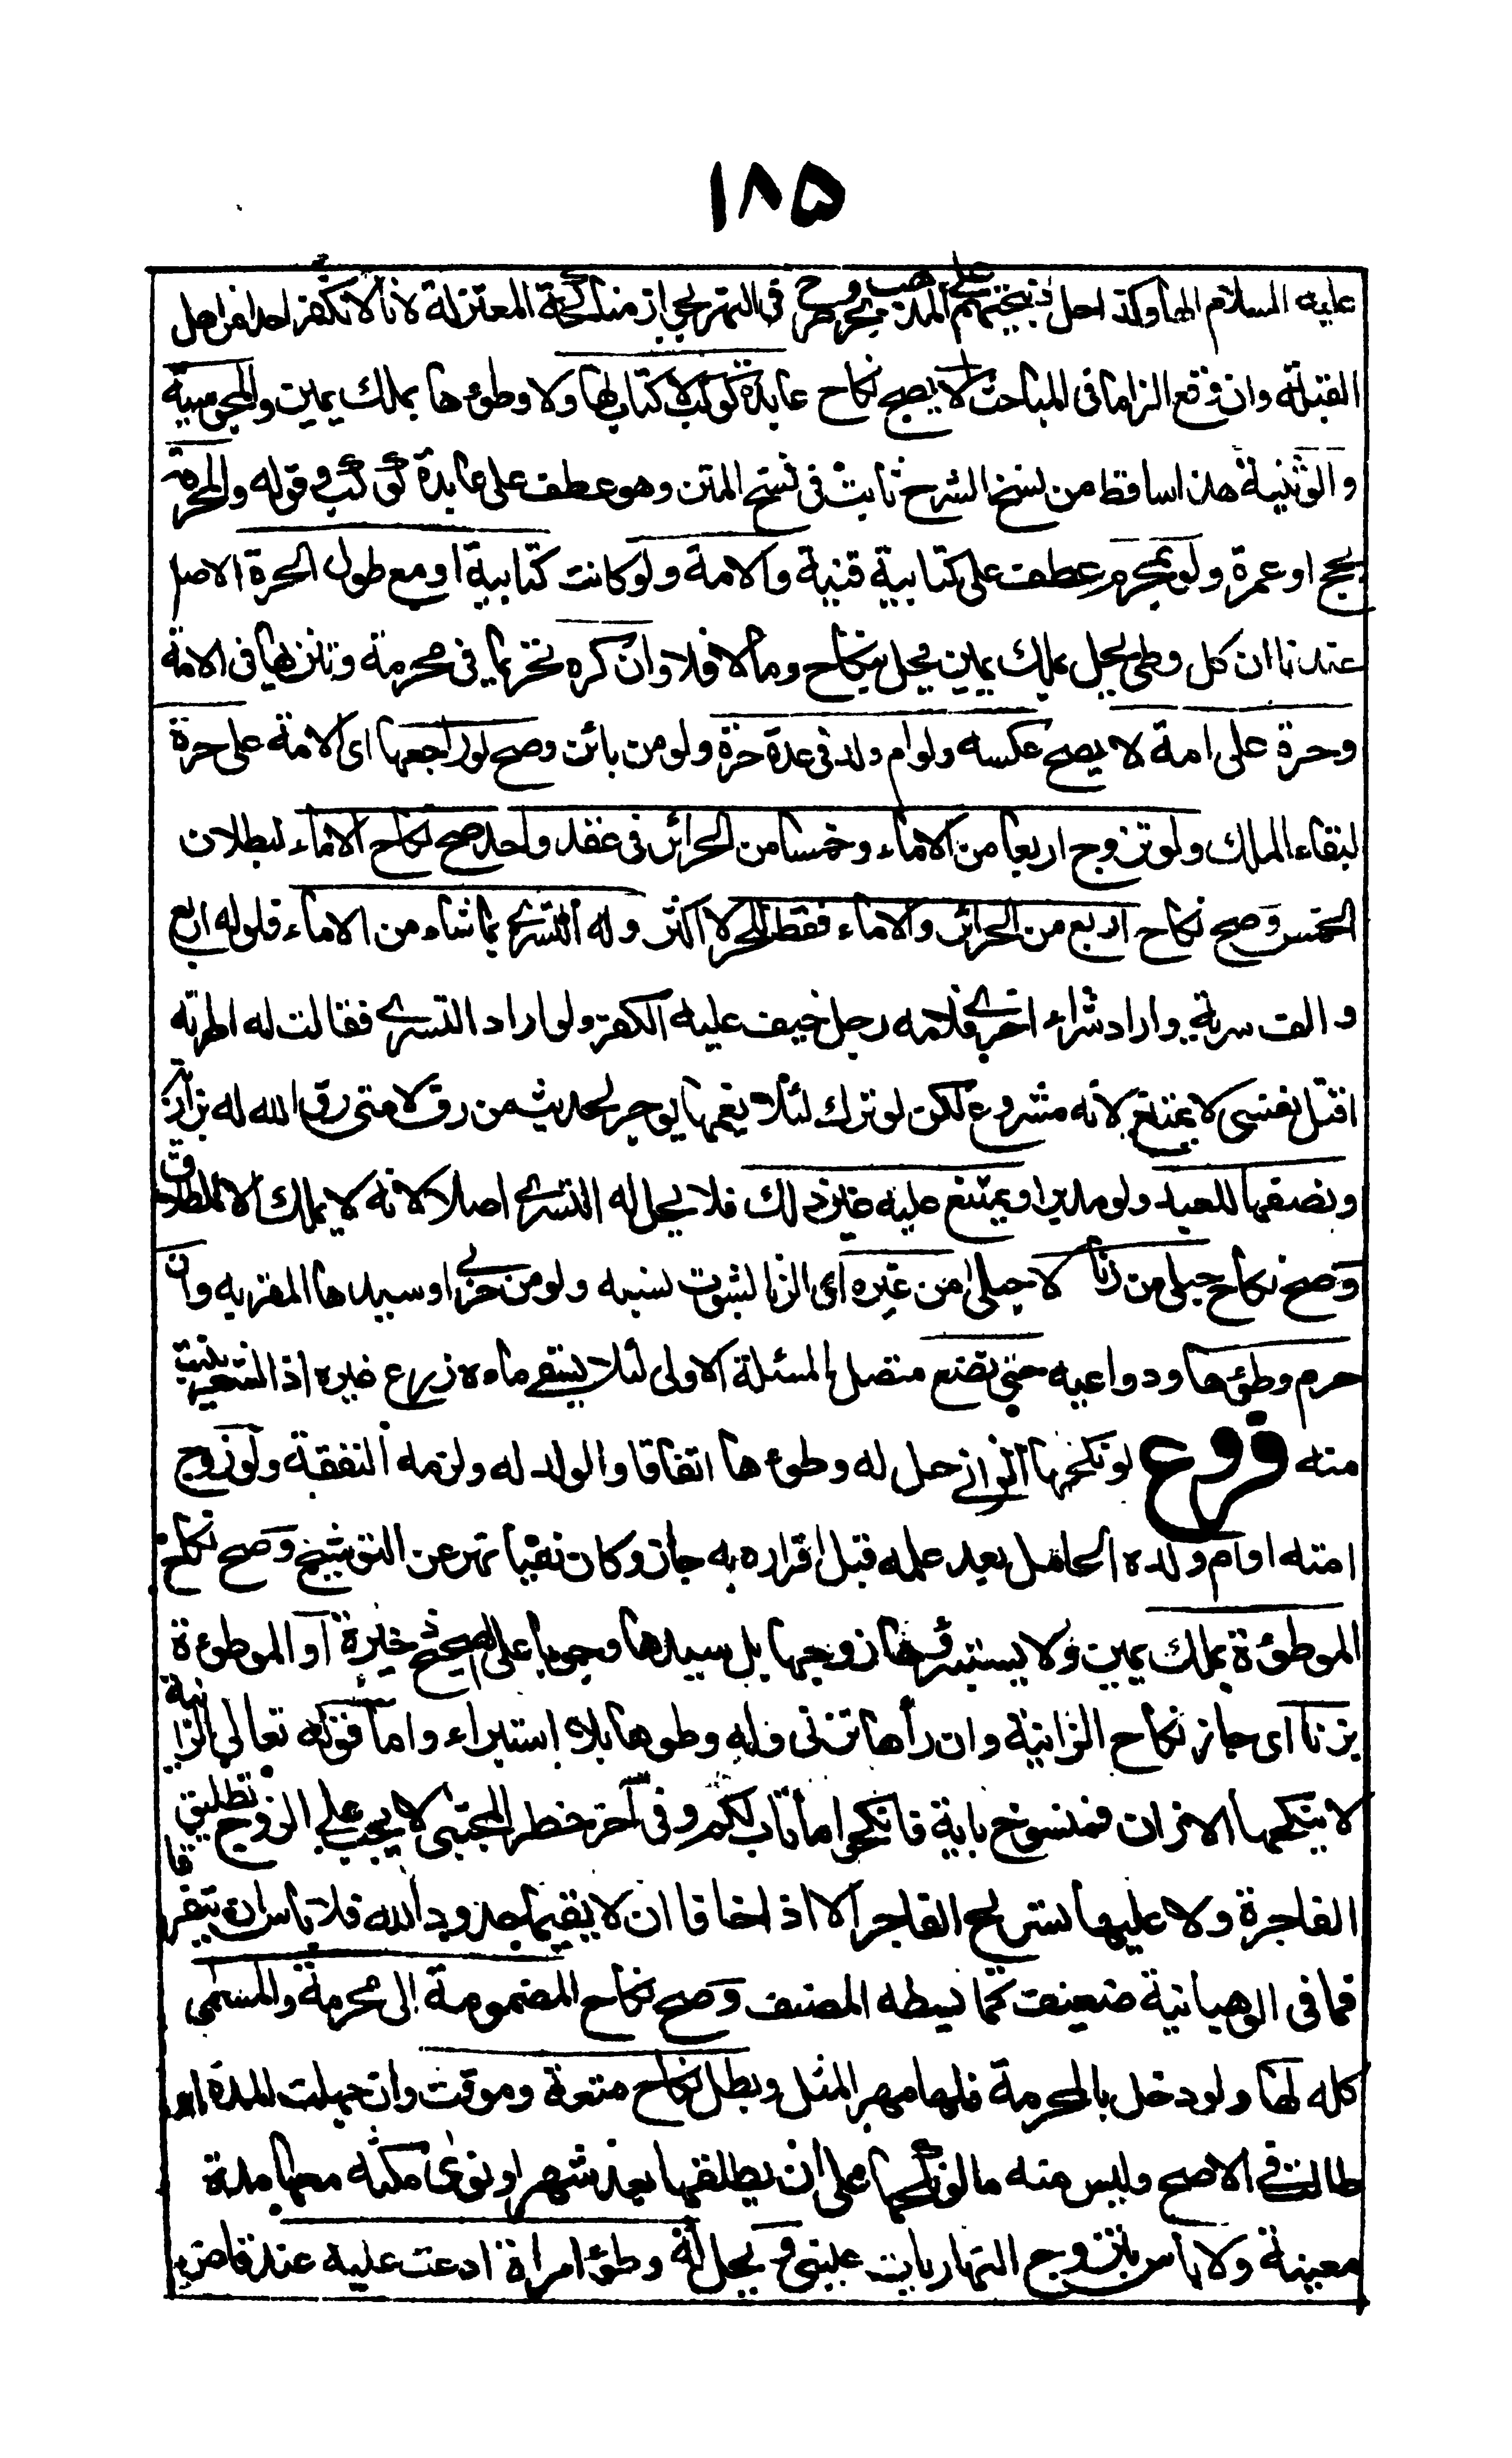 ١٨٥
عليه السلام الها وكذا حل ذبيحتهم على المذهب بحر وصرح في النهر بجواز مناكحة المعتزلة لانا لا نكفر احدا من اهل
القبلة وان وقع الزاما في المباحث لا يصح نكاح عابدة كوكب لا كتاب لها ولا وطؤها بملك يمين والمجوسية
والوثنية هذا ساقط من نسخ الشرح ثابت في نسخ المتن وهو عطف على عابدة كوكب وقوله والمحرمة
بحج او عمرة ولو بمحرم عطف على كتابية قنية والامة ولو كانت كتابية او مع طول الحرة الاصل
عندنا ان كل وطئ يحل بملك يمين يحل بنكاح وما لا فلا وان كره تحريما في محرمة وتنزيها في الامة
وحرة على امة لا يصح عكسه ولو ام ولد في عدة حرة ولو من بائن وصح لو راجعها اى الامة على حرة
لبقاء الملك ولو تزوج اربعا من الاماء وخمسا من الحرائر في عقد واحد صح نكاح الاماء لبطلان
الخمس وصح نكاح اربع من الحرائر والاماء فقط للحر لا اكثر وله التسرى بما شاء من الاماء فلو له اربع
والف سرية واراد شراء اخرى فلامه رجل خيف عليه الكفر ولو اراد التسرى فقالت له امرأته
اقتل نفسى لا يمتنع لانه مشروع لكن لو ترك لئلا يغمها يوجر لحديث من رق لامتى رق الله له بزازية
ونصفها للعبد ولو مدبرا ويمتنع عليه غير ذلك فلا يحل له التسرى اصلا لانه لا يملك الا الطلاق
وصح نكاح حبلى من زنا لا حبلى من غيره اى الزنا لثبوت نسبه ولو من حربى او سيدها المقر به وان
حرم وطؤها ودواعيه حتى تضع متصل بالمسئلة الاولى لئلا يسقى ماءه زرع غيره اذ الشعر ينبت
منه فروع لو نكحها الزانى حل له وطوءها اتفاقا والولد له ولزمه النفقة ولو زوج
امته او ام ولده الحامل بعد علمه قبل اقراره به جاز وكان نفيا نهر عن التوشيح وصح نكاح
الموطؤة بملك يمين ولا يستبرئها زوجها بل سيدها وجوبا على الصحيح ذخيرة او الموطوءة
بزنا اى جاز نكاح الزانية وان رأها تزنى وله وطوها بلا استبراء واما قوله تعالى الزانية
لا ينكحها الا زان فمنسوخ باية فانكحوا ما طاب لكم وفي آخر حظر المجتبى لا يجب على الزوج تطليق
الفاجرة ولا عليها تسريح الفاجر الا اذا خافا ان لا يقيما حدود الله فلا باس ان يتفرقا
فما في الوهبانية ضعيف كما بسطه المصنف وصح نكاح المضمومة الى محرمة والمسمى
كله لها ولو دخل بالمحرمة فلها مهر المثل وبطل نكاح متعة وموقت وان جهلت المدة او
طالت في الاصح وليس منه ما لو نكحها على ان يطلقها بعد شهر او نوى مكثه معها مدة
معينة ولا باس بتزوج النهاريات عينى ويحل له وطؤ امراة ادعت عليه عند قاض